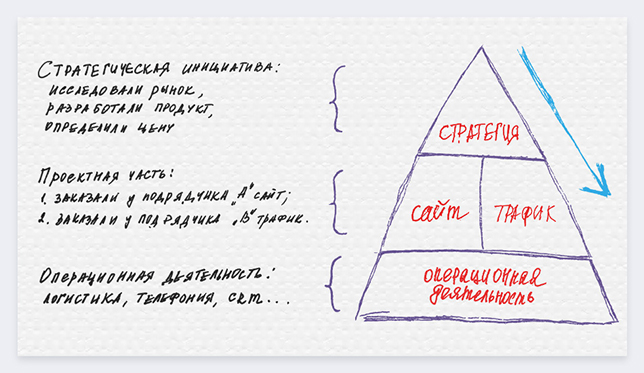 Стратегическая инициатива:
исследовали рынок,
разработали продукт,
определили цену
Проектная часть:
1. заказали у подрядчика „А" сайт;
2. заказали у подрядчика „В" трафик.
Операционная деятельность:
логистика, телефония, crm...
стратегия
сайт
трафик
операционная
деятельность